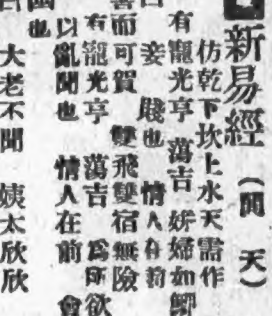 新易經 (閒天)
仿乾下坎上水天需作
有寵光亨 萬吉 妒婦如
妾 賤也 情人在前
而可賀 雙飛雙宿無險
有寵光亨 萬吉 爲所欲
以亂聞也 情人在前 會
也
大老不聞 姨太欣欣